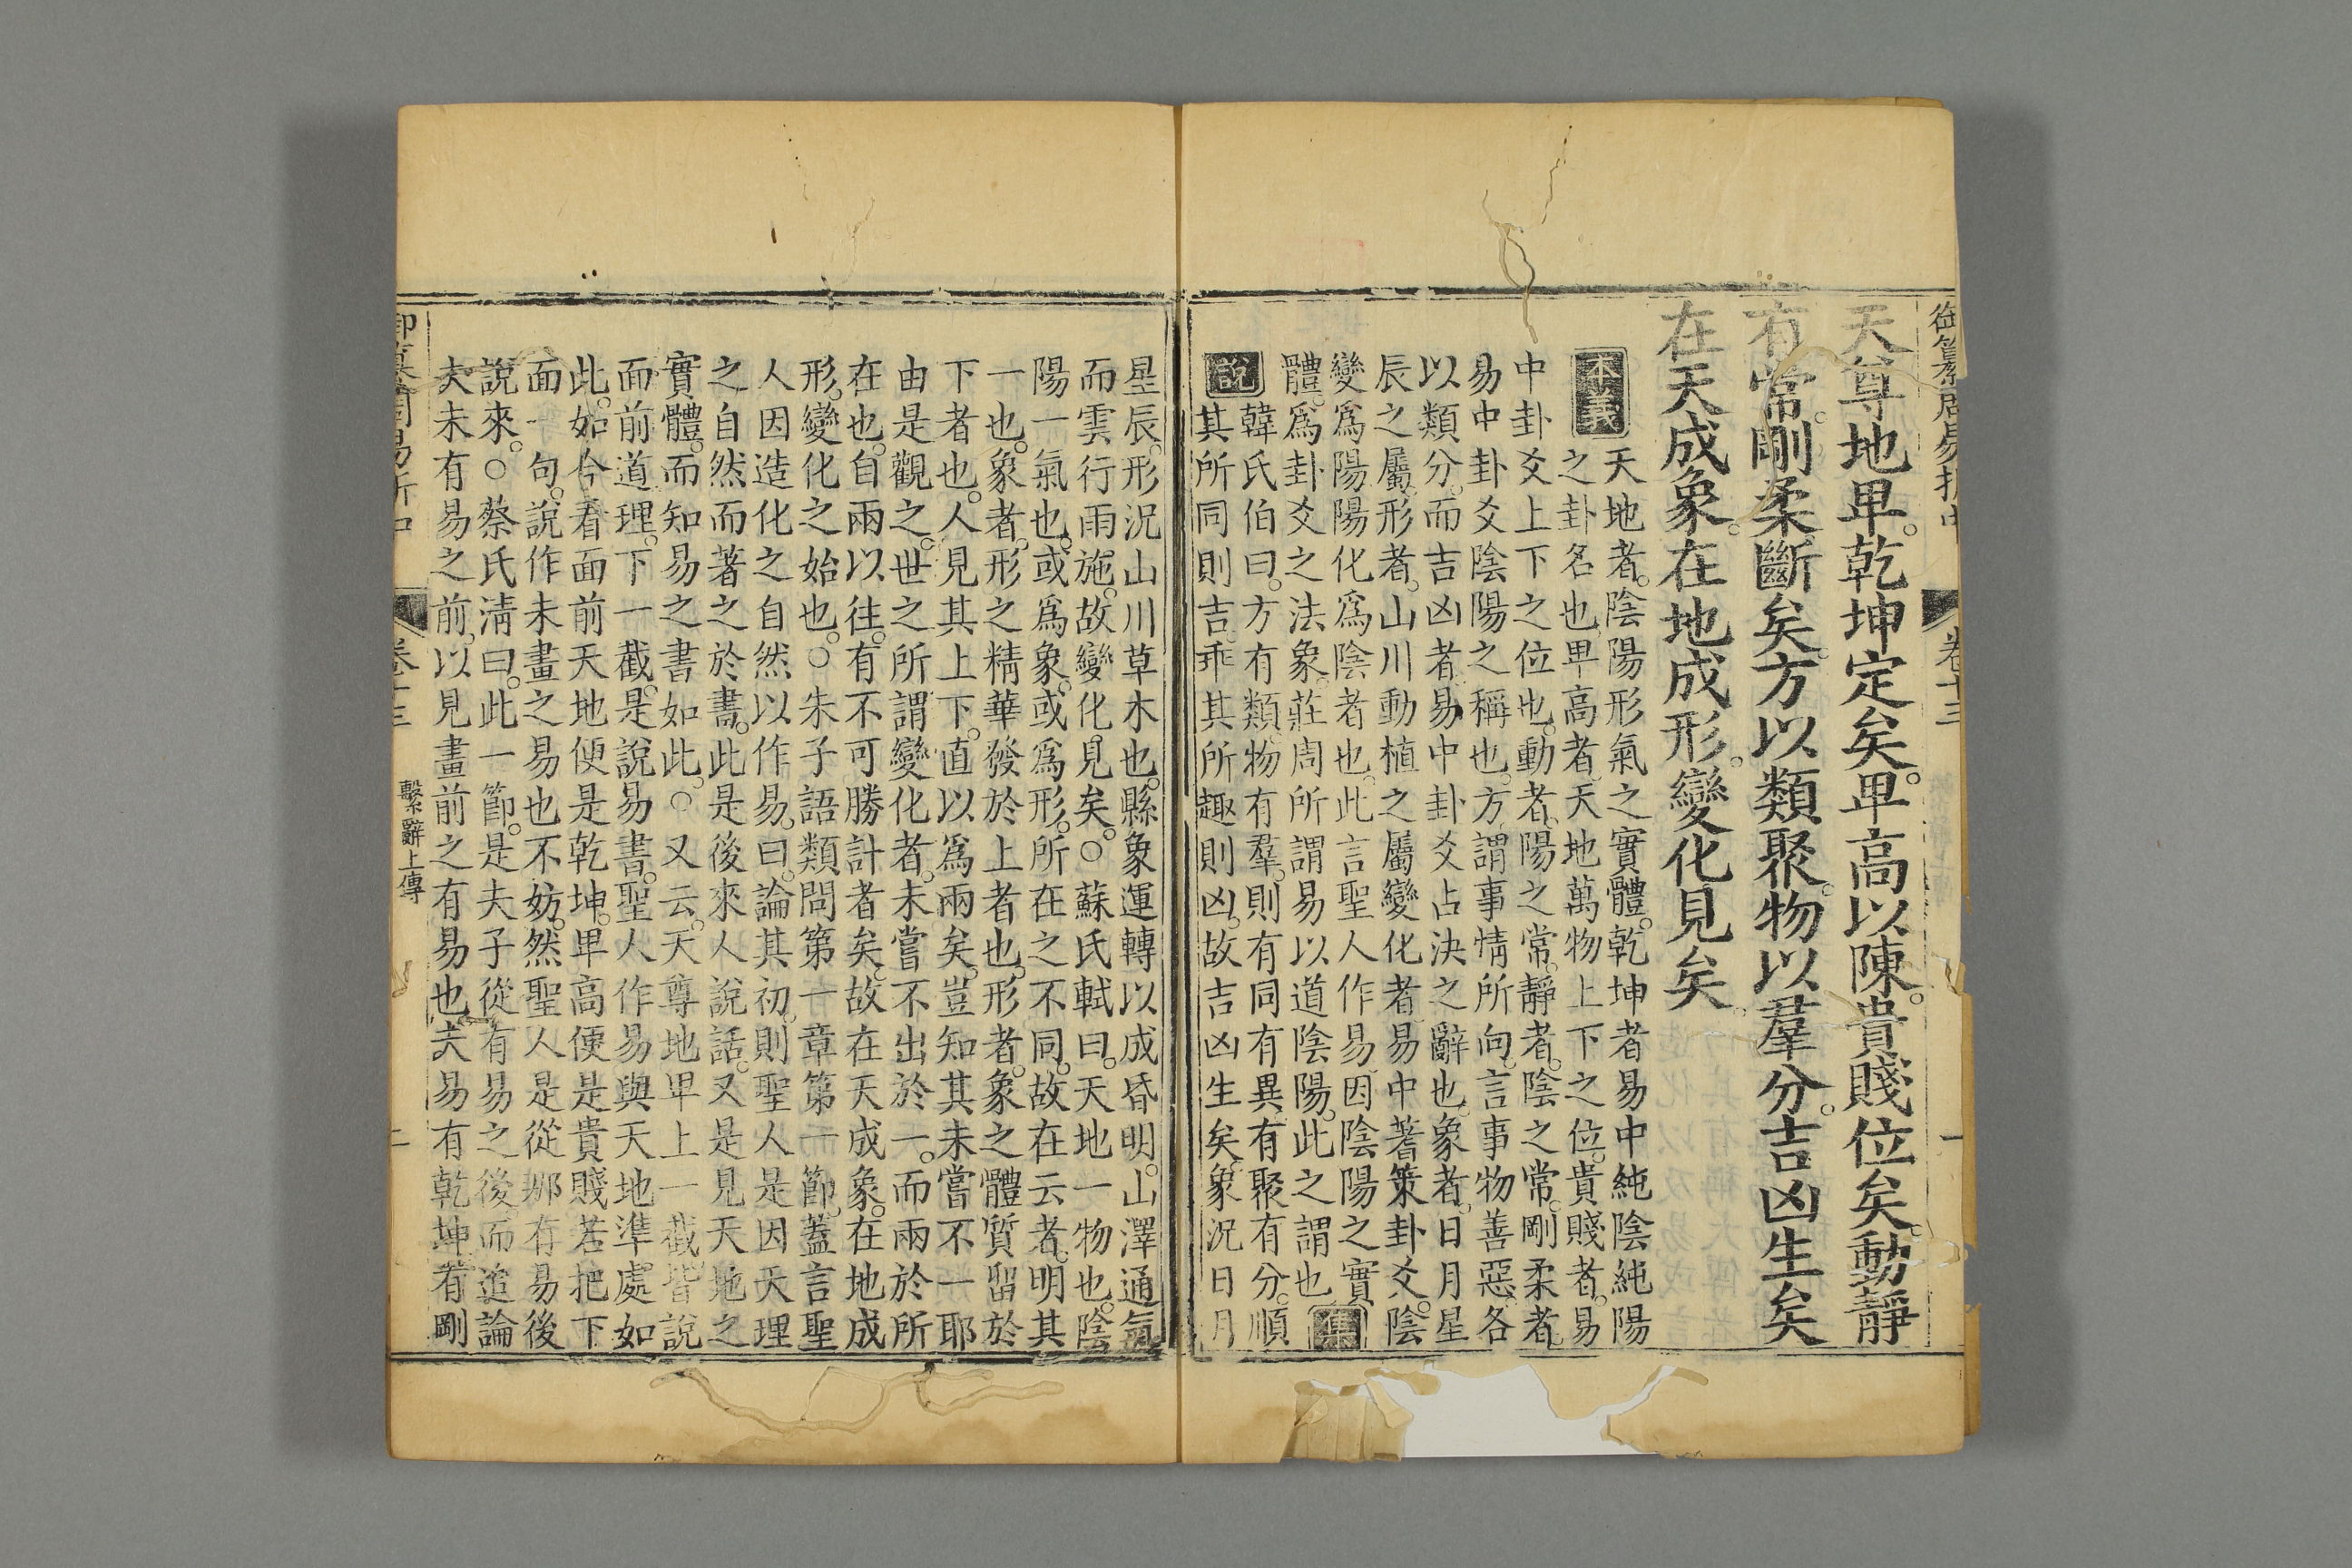 御纂周易折中 卷十三
天尊地卑。乾坤定矣。卑高以陳。貴賤位矣。動靜
有常。剛柔斷矣。方以類聚。物以羣分。吉凶生矣。
在天成象。在地成形。變化見矣。
本義 天地者。陰陽形氣之實體。乾坤者易中純陰純陽
之卦名也。卑高者。天地萬物上下之位。貴賤者。易
中卦爻上下之位也。動者。陽之常。靜者。陰之常。剛柔者。
易中卦爻陰陽之稱也。方。謂事情所向。言事物善惡。各
以類分。而吉凶者。易中卦爻占決之辭也。象者。日月星
辰之屬。形者。山川動植之屬。變化者。易中蓍策卦爻。陰
變爲陽。陽化爲陰者也。此言聖人作易。因陰陽之實
體。爲卦爻之法象。莊周所謂易以道陰陽。此之謂也。 集
說 韓氏伯曰。方有類。物有羣。則有同有異。有聚有分。順
其所同則吉。乖其所趣則凶。故吉凶生矣。象況日月
星辰。形況山川草木也。縣象運轉以成昏明。山澤通氣
而雲行雨施。故變化見矣。○蘇氏軾曰。天地一物也。陰
陽一氣也。或爲象。或爲形。所在之不同。故在云者。明其
一也。象者。形之精華發於上者也。形者。象之體質留於
下者也。人見其上下。直以爲兩矣。豈知其未嘗不一耶
由是觀之。世之所謂變化者。未嘗不出於一。而兩於所
在也。自兩以往。有不可勝計者矣。故在天成象。在地成
形。變化之始也。○朱子語類問第一章第一節。蓋言聖
人因造化之自然以作易。曰。論其初。則聖人是因天理
之自然而著之於書。此是後來人說話。又是見天地之
實體。而知易之書如此。○又云。天尊地卑上一截皆說
面前道理。下一截。是說易書。聖人作易與天地準處如
此。如今看面前天地便是乾坤。卑高便是貴賤若把下
面一句。說作未畫之易也不妨。然聖人是從那有易後
說來。○蔡氏淸曰。此一節。是夫子從有易之後。而追論
夫未有易之前。以見畫前之有易也夫易有乾坤。有剛
卷十三 繫辭上傳